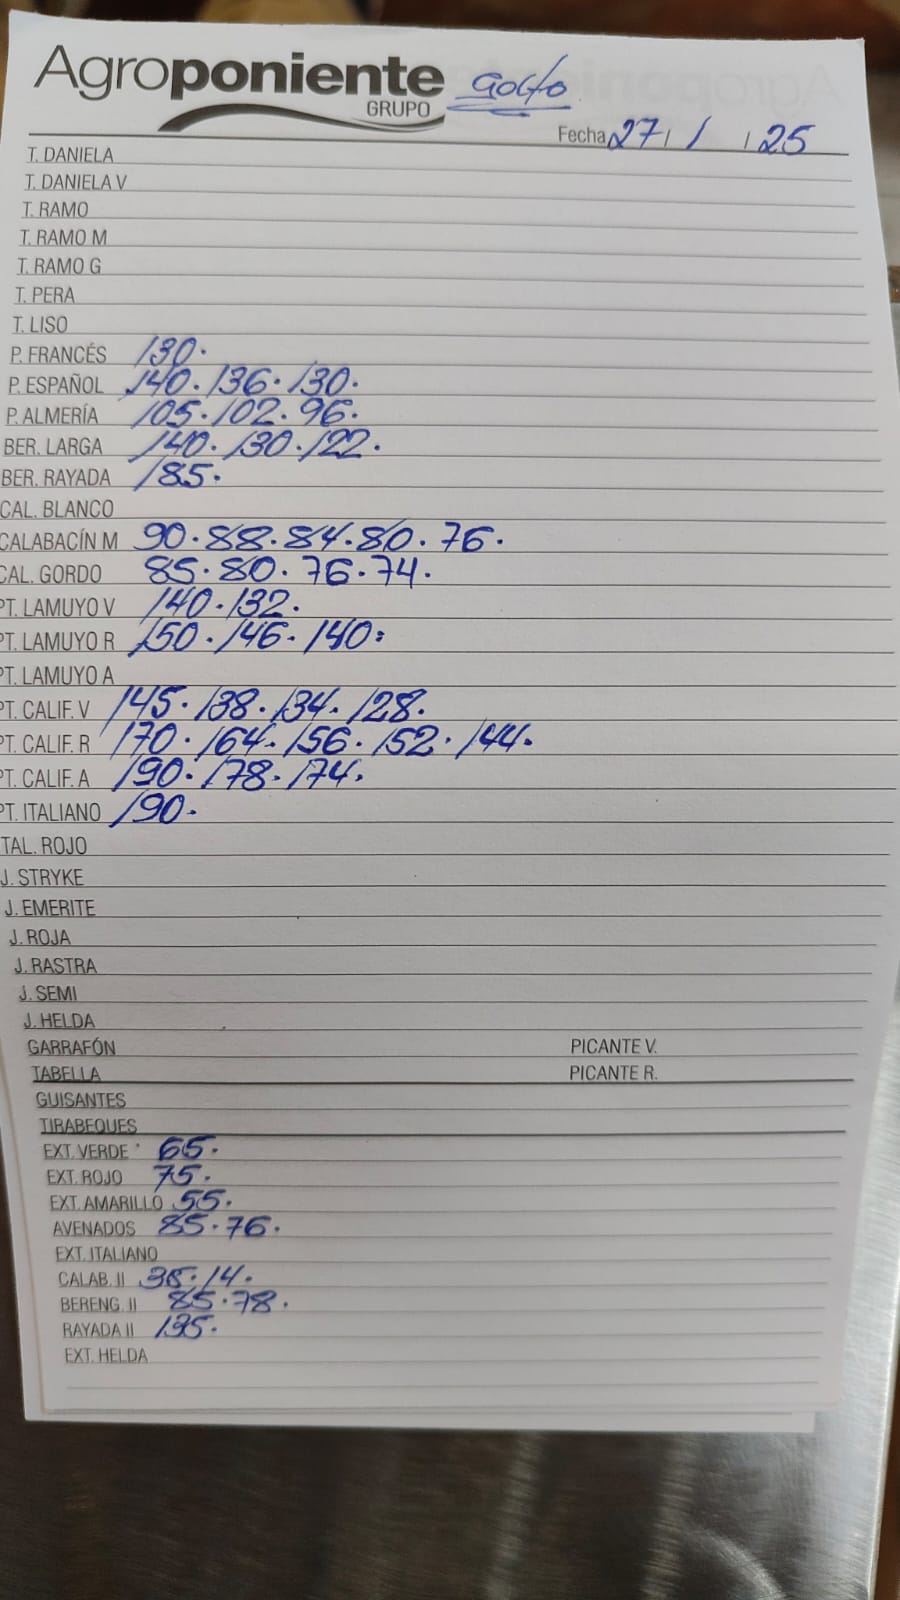 Agroponiente Golfo
GRUPO
Fecha 27 / 1 / 25
T. DANIELA
T. DANIELA V
T. RAMO
T. RAMO M
T. RAMO G
T. PERA
T. LISO
P. FRANCÉS 130.
P. ESPAÑOL 140. 136. 130.
P. ALMERÍA 105. 102. 96.
BER. LARGA 140. 130. 122.
BER. RAYADA 185.
CAL. BLANCO
CALABACÍN M 90. 88. 84. 80. 76.
CAL. GORDO 85. 80. 76. 74.
PT. LAMUYO V 140. 132.
PT. LAMUYO R 150. 146. 140.
PT. LAMUYO A
PT. CALIF. V 145. 138. 134. 128.
PT. CALIF. R 170. 164. 156. 152. 144.
PT. CALIF. A 190. 178. 174.
PT. ITALIANO 190.
TAL. ROJO
J. STRYKE
J. EMERITE
J. ROJA
J. RASTRA
J. SEMI
J. HELDA
GARRAFÓN PICANTE V.
TABELLA PICANTE R.
GUISANTES
TIRABEQUES
EXT. VERDE 65.
EXT. ROJO 75.
EXT. AMARILLO 55.
AVENADOS 85. 76.
EXT. ITALIANO
CALAB. II 14.
BERENG. II 85. 78.
RAYADA II 135.
EXT. HELDA